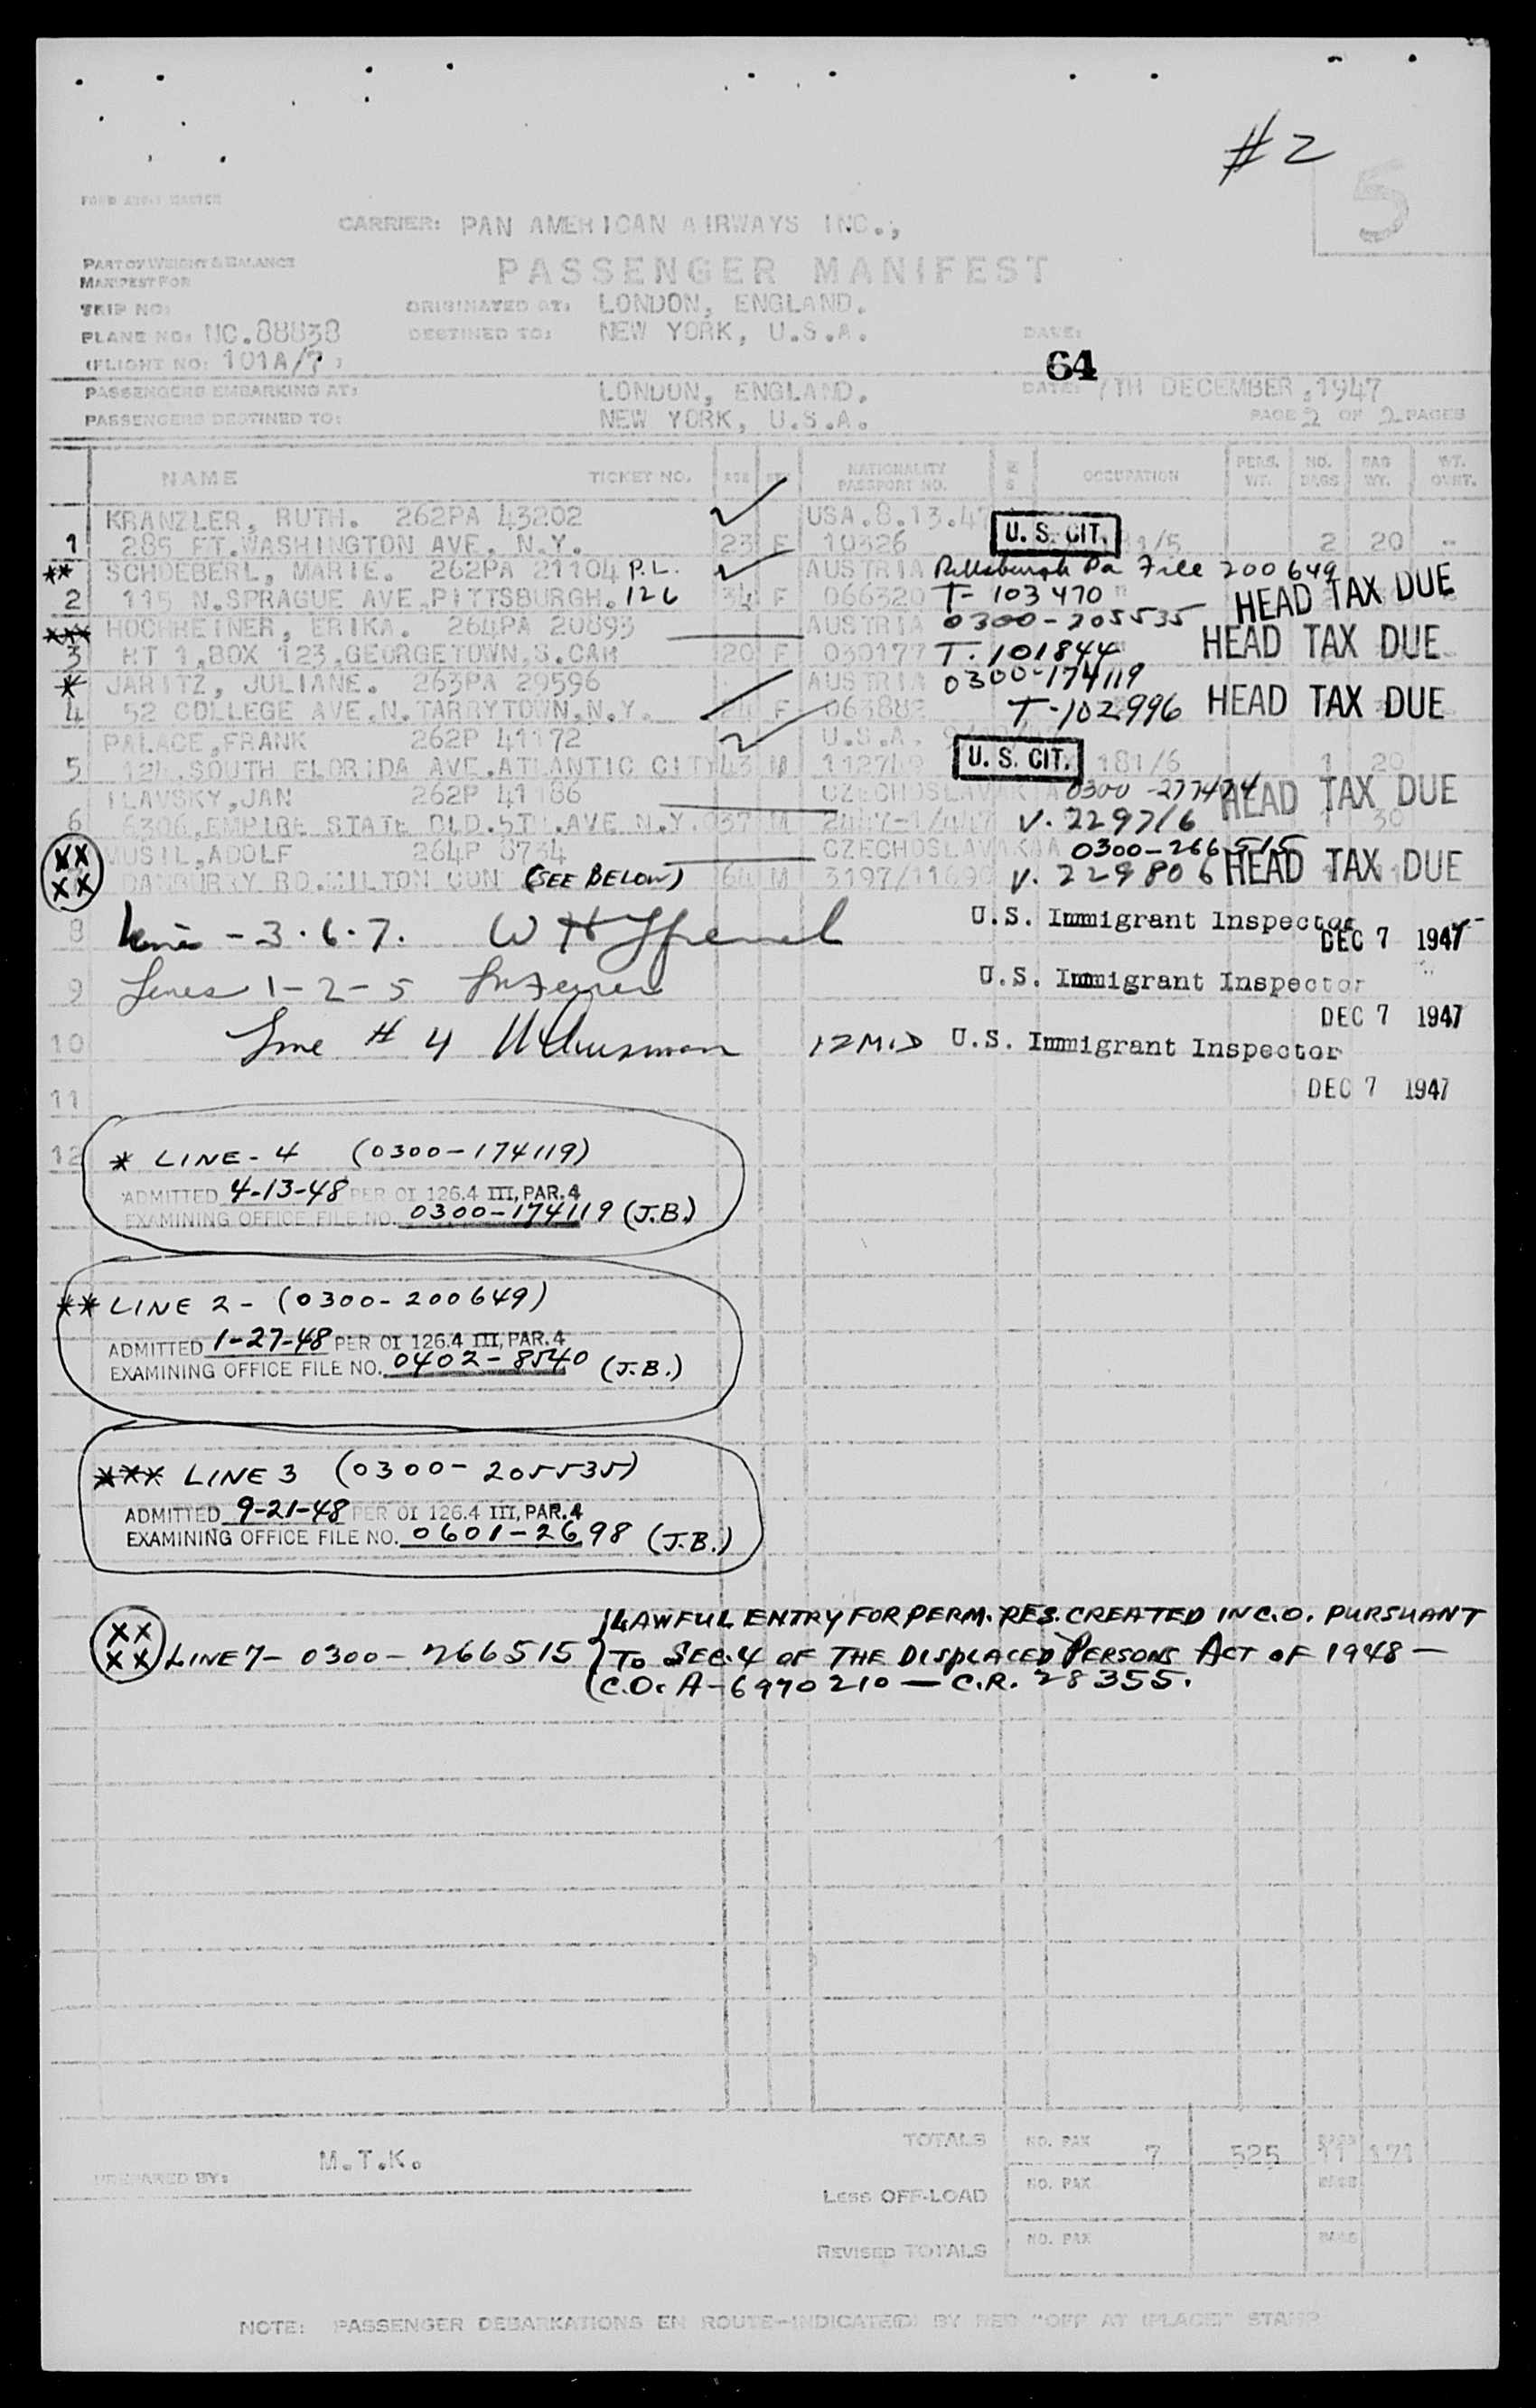 #2
5
FORM
CARRIER: PAN AMERICAN AIRWAYS INC.,
PART OF WEIGHT & BALANCE
MANIFEST FOR
PASSENGER MANIFEST
TRIP NO:
ORIGINATED AT: LONDON, ENGLAND.
PLANE NO: NC.88838 DESTINED TO: NEW YORK, U.S.A. DATE:
(FLIGHT NO: 101A/7 )
64
PASSENGERS EMBARKING AT: LONDON, ENGLAND. DATE: 7TH DECEMBER,1947
PASSENGERS DESTINED TO: NEW YORK, U.S.A. PAGE 2 OF 2 PAGES
NAME TICKET NO. AGE SEX NATIONALITY PASSPORT NO. OCCUPATION PERS. WT. NO. BAGS BAG WT. WT. OVRT.
KRANZLER, RUTH. 262PA 43202 USA.8.13.47
1 285 FT.WASHINGTON AVE, N.Y. 23 F 10326 U. S. CIT. 2 20 --
** SCHOEBERL, MARIE. 262PA 21104 P.L. AUSTRIA Pittsburgh Pa File 200649
2 115 N.SPRAGUE AVE.PITTSBURGH. 126 34 F 066320 T-103470 HEAD TAX DUE
*** HOCHREINER, ERIKA. 264PA 20893 AUSTRIA 0300-205535
3 RT 1,BOX 123,GEORGETOWN,S.CAR 20 F 030177 T-101844 HEAD TAX DUE
* JARITZ, JULIANE. 263PA 29596 AUSTRIA 0300-174119
4 52 COLLEGE AVE.N.TARRYTOWN,N.Y. F 06388 T-102996 HEAD TAX DUE
PALACE,FRANK 262P 41172 U.S.A.
5 124.SOUTH FLORIDA AVE.ATLANTIC CITY 43 M 112749 U. S. CIT. 181/6 1 20
ILAVSKY,JAN 262P 41186 CZECHOSLAVAKIA 0300-277474 HEAD TAX DUE
6 6306,EMPIRE STATE BLD.5TH.AVE N.Y. 37 M V. 229716 30
XX XX MUSIL,ADOLF 264P 8734 CZECHOSLAVAKIA 0300-266515
DANBURRY RD.WILTON CON (SEE BELOW) 64 M 3197/11690 V. 229806 HEAD TAX DUE
8 Lines - 3.6.7. U.S. Immigrant Inspector DEC 7 1947
9 Lines 1-2-5 U.S. Immigrant Inspector
DEC 7 1947
10 Line # 4 12 MID U.S. Immigrant Inspector
DEC 7 1947
11
12
* LINE-4 (0300-174119)
ADMITTED 4-13-48 PER OI 126.4 III, PAR. 4
EXAMINING OFFICE FILE NO. 0300-174119 (J.B.)
** LINE 2- (0300-200649)
ADMITTED 1-27-48 PER OI 126.4 III, PAR. 4
EXAMINING OFFICE FILE NO. 0402-8540 (J.B.)
*** LINE 3 (0300-205535)
ADMITTED 9-21-48 PER OI 126.4 III, PAR. 4
EXAMINING OFFICE FILE NO. 0601-2698 (J.B.)
LAWFUL ENTRY FOR PERM. RES. CREATED IN C.O. PURSUANT
XX XX LINE 7- 0300-266515 TO SEC.4 OF THE DISPLACED PERSONS ACT OF 1948-
C.O. A-6970210 - C.R. 28355.
TOTALS NO. PAX 7 525 BAGS 11 171
PREPARED BY: M.T.K.
LESS OFF-LOAD NO. PAX BAGS
REVISED TOTALS NO. PAX BAGS
NOTE: PASSENGER DEBARKATIONS EN ROUTE-INDICATE(D) BY RED "OFF AT (PLACE)" STAMP